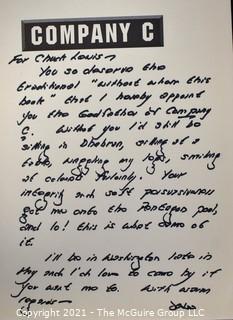 COMPANY C
For Chuck Lewis —
You so deserve the
traditional "without whom this
book" that I hereby appoint
you the Godfather of Company
C. Without you I'd still be
sitting in Dhahran, sitting at a
table, wiggling my toes, smiling
at colonels . Your
integrity and soft persuasiveness
got me onto the Pentagon pool,
and lo! this is what came of
it.
I'll be in Washington late in
May and I'd love to come by if
you want me to. With warm
regards —
Copyright 2021 - The McGuire Group LLC